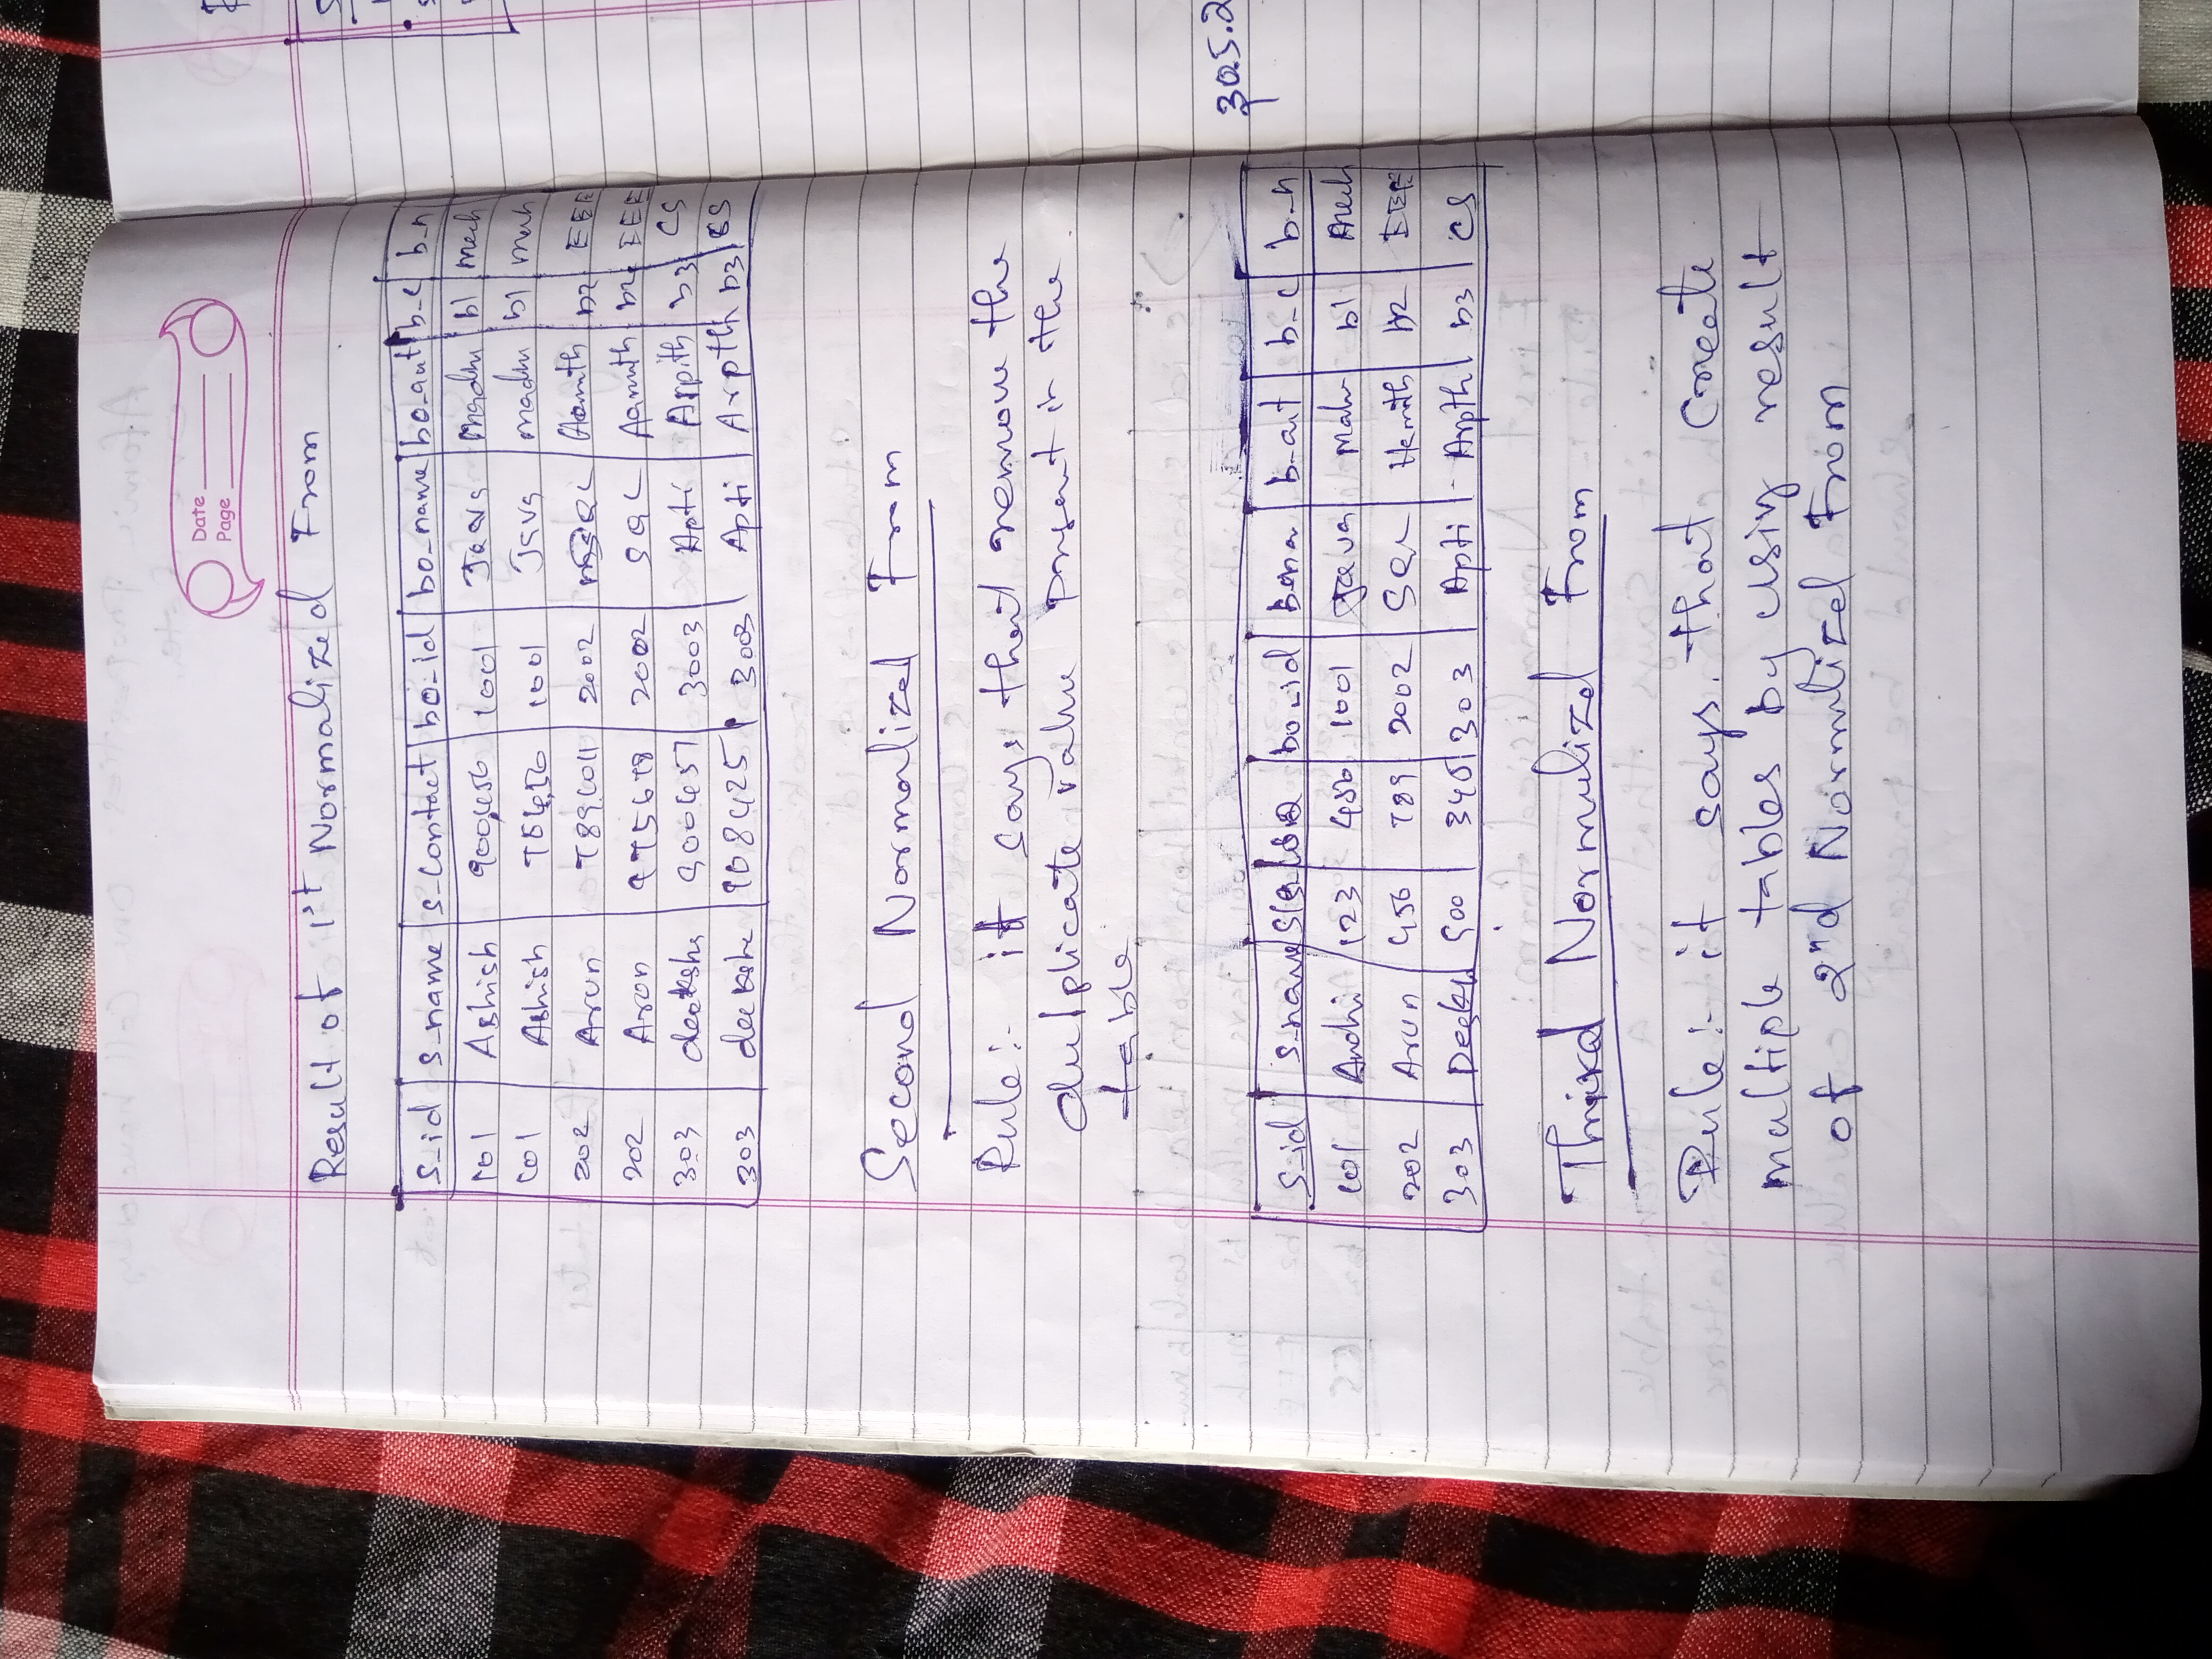 Date
Page
Result of 1st Normalized From
s_id s_name s_contact bo_id bo_name bo_aut b_c b_n
101 Ashish 900456 1001 Java madhu b1 mech
101 Ashish 1001 Java madhu b1 mech
202 Arun 2002 b2 EEE
202 Arun 975678 2002 SQL b2 EEE
303 deeksha 900457 3003 Apti Arpith b3 CS
303 908425 3003 Apti Arpth b3 CS
Second Normalized From
Rule:- it says that remove the
dulplicate value present in the
table
s_id s_name bo_id b_aut b_c b_n
101 123 456 1001 Java b1
202 Arun 456 789 2002 SQL b2 EEE
303 900 303 Apti Arpth b3 CS
30.5.2
Third Normalized From
Rule:- it says that create
multiple tables by using result
of 2nd Normalized From